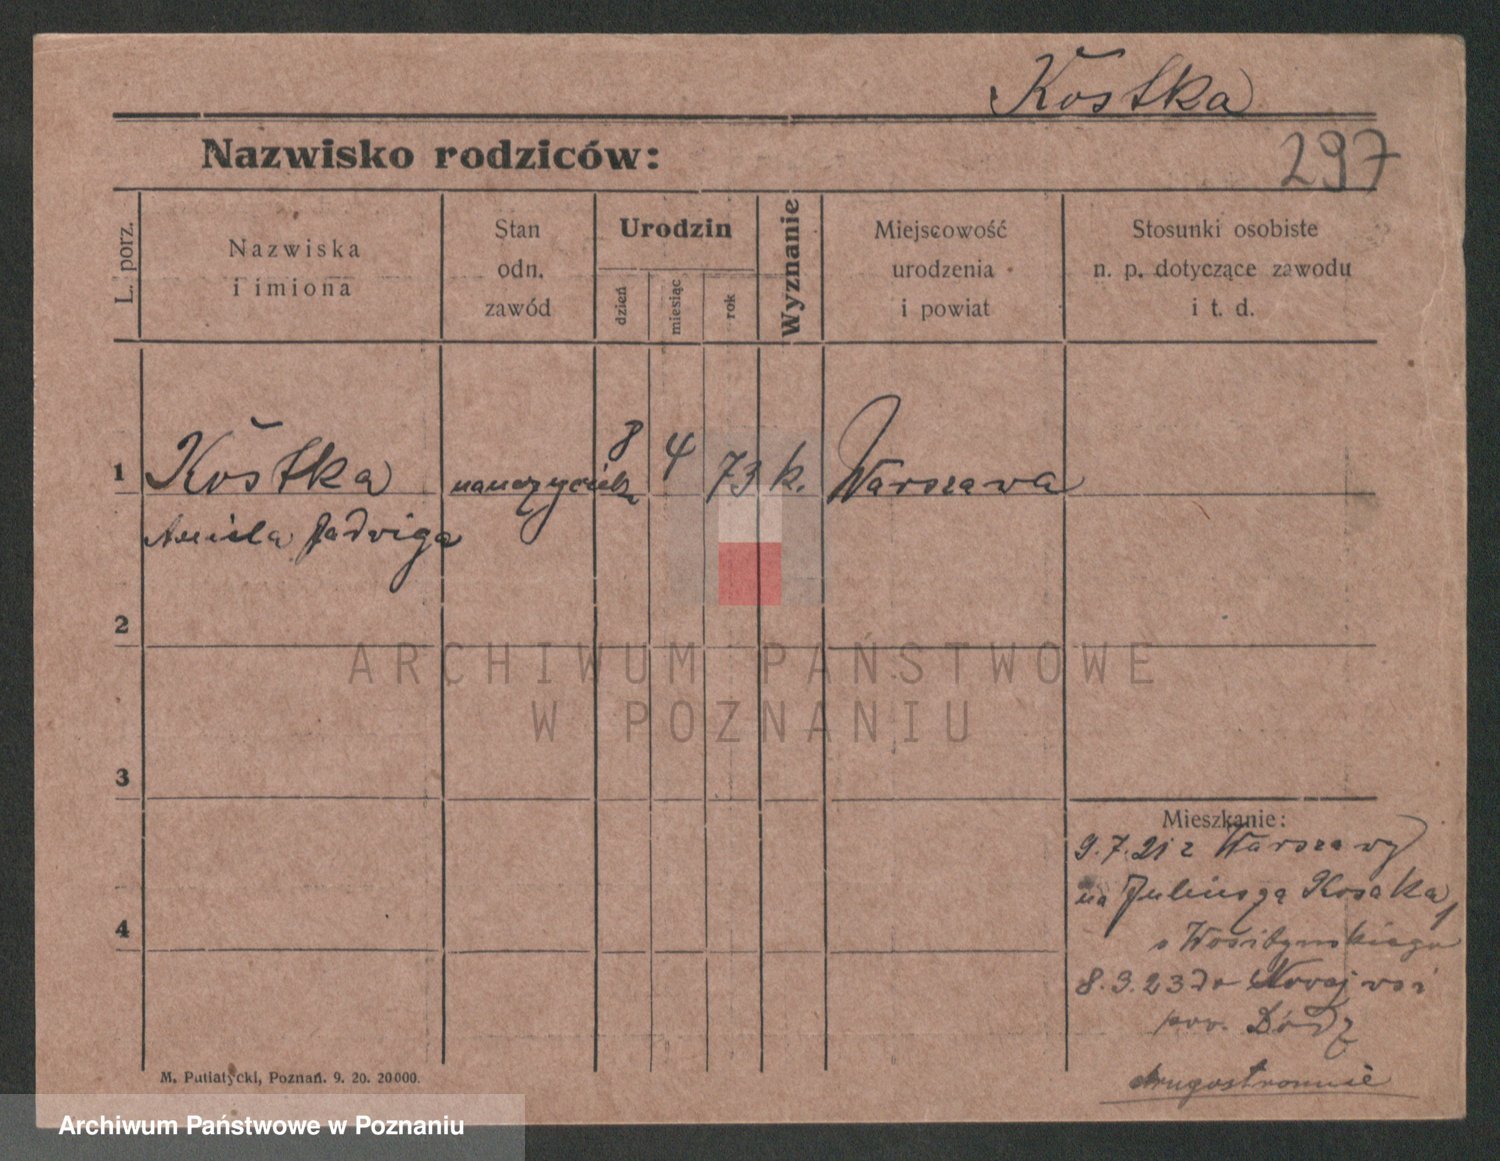 Kostka
297
Nazwisko rodziców:
L. porz.
Nazwiska
i imiona
Stan
odn.
zawód
Urodzin
dzień
miesiąc
rok
Wyznanie
Miejscowość
urodzenia
i powiat
Stosunki osobiste
n. p. dotyczące zawodu
i t. d.
1
Kostka
8 4 73 k. Warszawa
Jadwiga
2
ARCHIWUM PAŃSTWOWE
W POZNANIU
3
Mieszkanie:
9.7.21 z Warszawy
na Juliusza Kosaka
4
8.3.23 do Nowej wsi
pow. Łódź
drugostronnie
M. Putiatycki, Poznań. 9. 20. 20000.
Archiwum Państwowe w Poznaniu